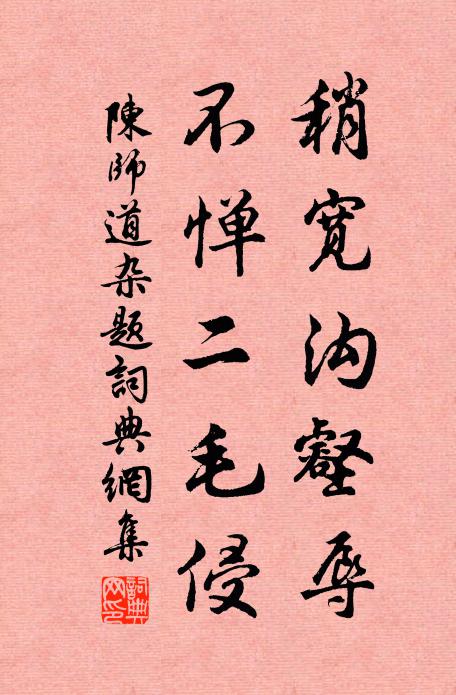 稍寬沟壑辱
不惮二毛侵
陳師道杂题詞典網集
詞典
网印